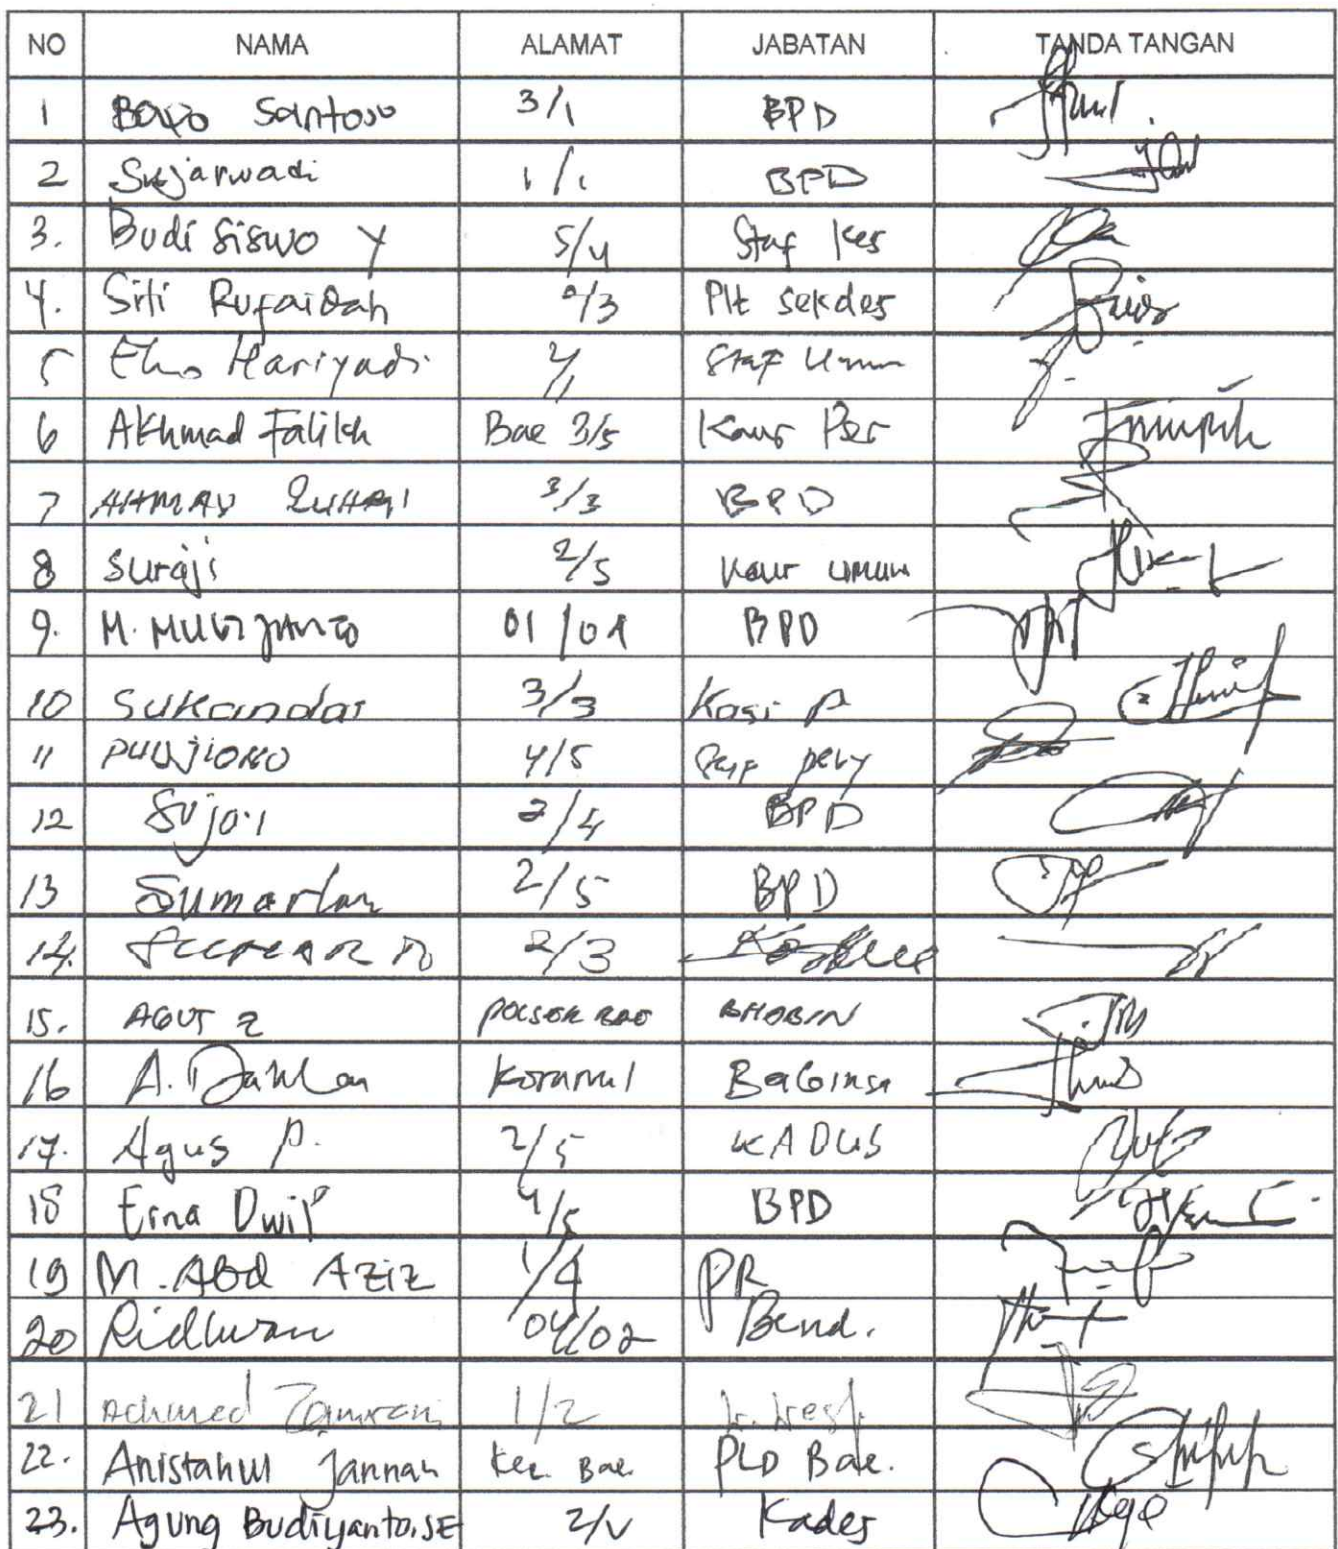 NO NAMA ALAMAT JABATAN TANDA TANGAN
1 Bayo Santoso 3/1 BPD
2 Sujarwadi 1/1 BPD
3. Budi Siswo Y 5/4 Staf Kes
4. Siti Rufaidah /3 Plt Sekdes
5 Eko Hariyadi 2/1 Staf Umum
6 Akhmad Falikh Bae 3/5 Kaur Per
7 AHMAD ZUHRI 3/3 BPD
8 Suraji 2/5 Kaur Umum
9. M. 01/01 BPD
10 Sukandar 3/3 Kasi P
11 PUDJIONO 4/5
12 Sujai 2/4 BPD
13 Sumarlan 2/5 BPD
14. 2/3
15. AGUS Z POLSEK BAE BHABIN
16 A. Dahlan Koramil Babinsa
17. Agus P. 2/5 KADUS
18 Erna Dwi P 4/5 BPD
19 M. Abd Aziz 1/4 PR
20 Ridhwan 04/02 Bend.
21 Achmed Zamroni 1/2
22. Anistahul Jannah Kec. Bae. PLD Bae.
23. Agung Budiyanto.SE 2/V Kades